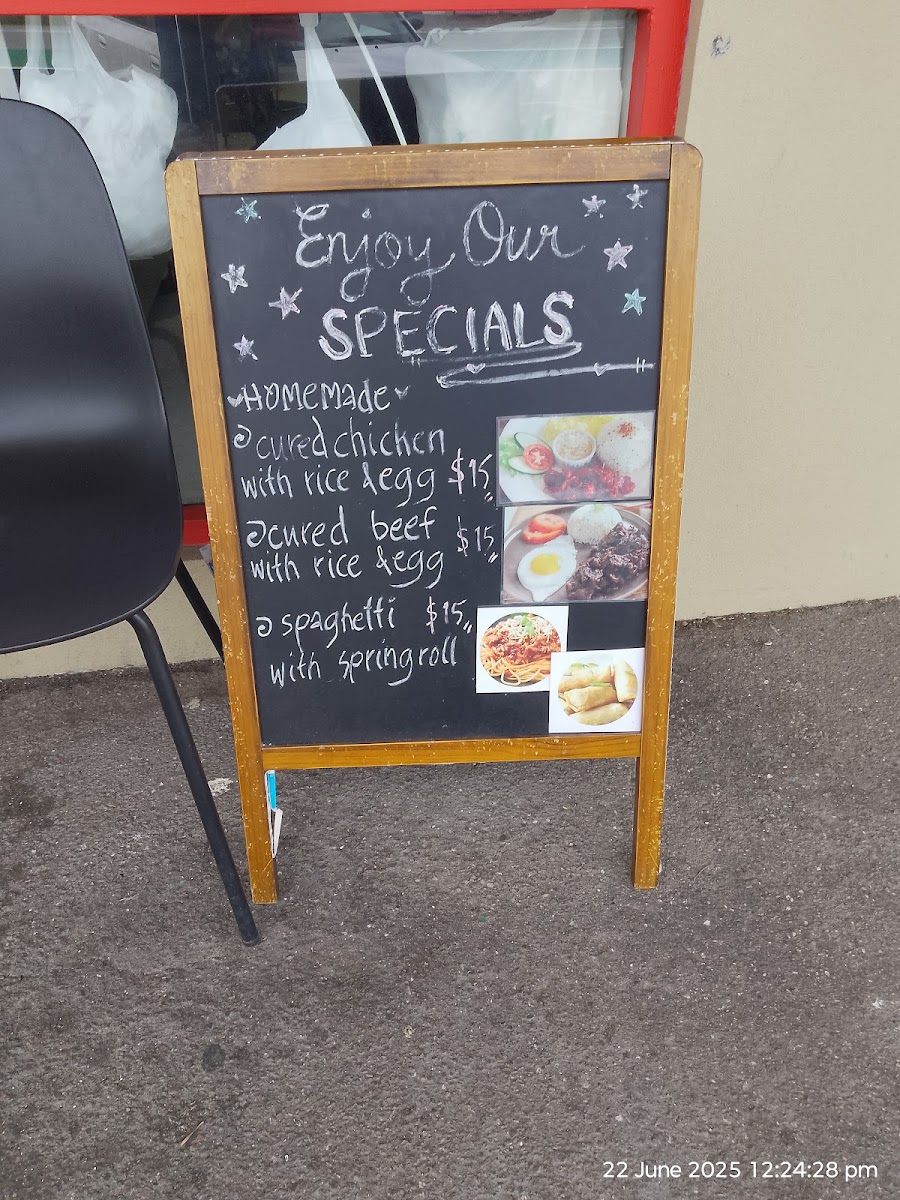 Enjoy Our
SPECIALS
HOMEMADE
cured chicken
with rice & egg $15
cured beef
with rice & egg $15
spaghetti $15
with springroll
22 June 2025 12:24:28 pm